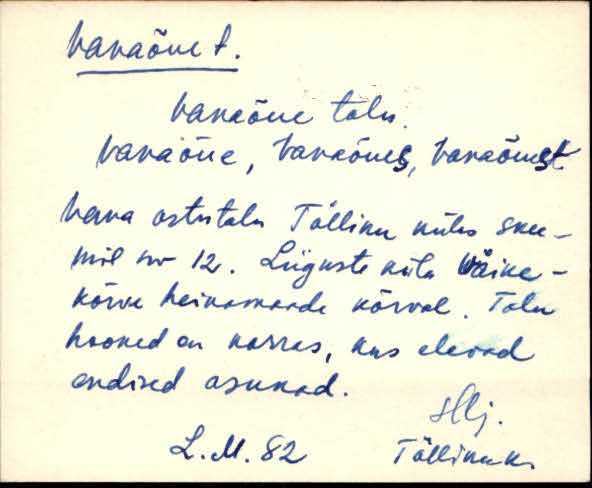 Vanaõue t.
Vanaõue talu.
Vanaõue, Vanaõues, Vanaõuest
Vana ostutalu Tõlliku külas skee-
mil nr 12. Liiguste küla Väike-
kõrve heinamaade kõrval. Talu
hooned on korras, kus elavad
endised asukad.
Hlj.
L.M. 82 Tõllikuk.